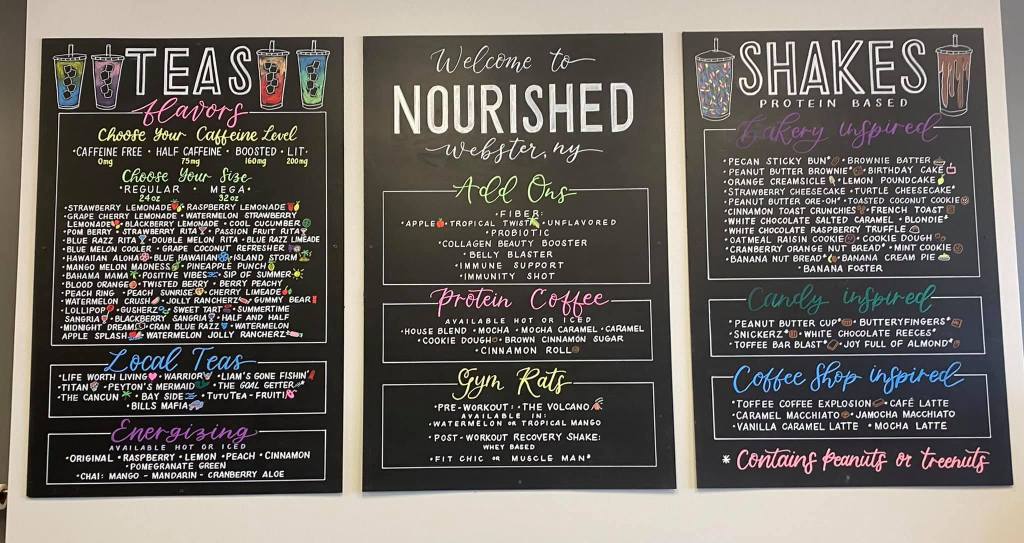 TEAS
flavors
Choose Your Caffeine Level
•CAFFEINE FREE • HALF CAFFEINE • BOOSTED • LIT•
0mg 75mg 160mg 200mg
Choose Your Size
•REGULAR • MEGA•
24oz 32oz
•STRAWBERRY LEMONADE •RASPBERRY LEMONADE
GRAPE CHERRY LEMONADE •WATERMELON STRAWBERRY
LEMONADE •BLACKBERRY LEMONADE •COOL CUCUMBER
•POM BERRY • STRAWBERRY RITA •PASSION FRUIT RITA
•BLUE RAZZ RITA •DOUBLE MELON RITA •BLUE RAZZ LIMEADE
•BLUE MELON COOLER •GRAPE COCONUT REFRESHER
•HAWAIIAN ALOHA •BLUE HAWAIIAN •ISLAND STORM
•MANGO MELON MADNESS •PINEAPPLE PUNCH
•BAHAMA MAMA •POSITIVE VIBES •SIP OF SUMMER
•BLOOD ORANGE •TWISTED BERRY •BERRY PEACHY
•PEACH RING •PEACH SUNRISE •CHERRY LIMEADE
•WATERMELON CRUSH •JOLLY RANCHERZ •GUMMY BEAR
•LOLLIPOP •GUSHERZ •SWEET TART •SUMMERTIME
SANGRIA •BLACKBERRY SANGRIA •HALF AND HALF
•MIDNIGHT DREAM •CRAN BLUE RAZZ •WATERMELON
APPLE SPLASH •WATERMELON JOLLY RANCHERZ
Local Teas
•LIFE WORTH LIVING •WARRIOR •LIAM'S GONE FISHIN'
•TITAN •PEYTON'S MERMAID •THE GOAL GETTER
•THE CANCUN •BAY SIDE •TUTUTEA•FRUITI
•BILLS MAFIA
Energizing
AVAILABLE HOT OR ICED
•ORIGINAL •RASPBERRY •LEMON •PEACH •CINNAMON
•POMEGRANATE GREEN
•CHAI: MANGO - MANDARIN - CRANBERRY ALOE
Welcome to
NOURISHED
Webster, ny
Add Ons
•FIBER:
•APPLE •TROPICAL TWIST •UNFLAVORED
•PROBIOTIC
•COLLAGEN BEAUTY BOOSTER
•BELLY BLASTER
•IMMUNE SUPPORT
•IMMUNITY SHOT
Protein Coffee
AVAILABLE HOT OR ICED
•HOUSE BLEND •MOCHA •MOCHA CARAMEL •CARAMEL
•COOKIE DOUGH •BROWN CINNAMON SUGAR
•CINNAMON ROLL
Gym Rats
•PRE-WORKOUT: •THE VOLCANO
AVAILABLE IN:
•WATERMELON OR TROPICAL MANGO
•POST-WORKOUT RECOVERY SHAKE:
WHEY BASED
•FIT CHIC OR MUSCLE MAN*
SHAKES
PROTEIN BASED
Bakery inspired
•PECAN STICKY BUN* •BROWNIE BATTER
•PEANUT BUTTER BROWNIE* •BIRTHDAY CAKE
•ORANGE CREAMSICLE •LEMON POUNDCAKE
•STRAWBERRY CHEESECAKE •TURTLE CHEESECAKE*
•PEANUT BUTTER ORE-OH* •TOASTED COCONUT COOKIE
•CINNAMON TOAST CRUNCHIES •FRENCH TOAST
•WHITE CHOCOLATE SALTED CARAMEL •BLONDIE*
•WHITE CHOCOLATE RASPBERRY TRUFFLE
•OATMEAL RAISIN COOKIE •COOKIE DOUGH
•CRANBERRY ORANGE NUT BREAD* •MINT COOKIE
•BANANA NUT BREAD* •BANANA CREAM PIE
•BANANA FOSTER
Candy inspired
•PEANUT BUTTER CUP* •BUTTERYFINGERS*
•SNICKERZ* •WHITE CHOCOLATE REECES*
•TOFFEE BAR BLAST* •JOY FULL OF ALMOND*
Coffee Shop inspired
•TOFFEE COFFEE EXPLOSION •CAFÉ LATTE
•CARAMEL MACCHIATO •JAMOCHA MACCHIATO
•VANILLA CARAMEL LATTE •MOCHA LATTE
* Contains Peanuts or treenuts